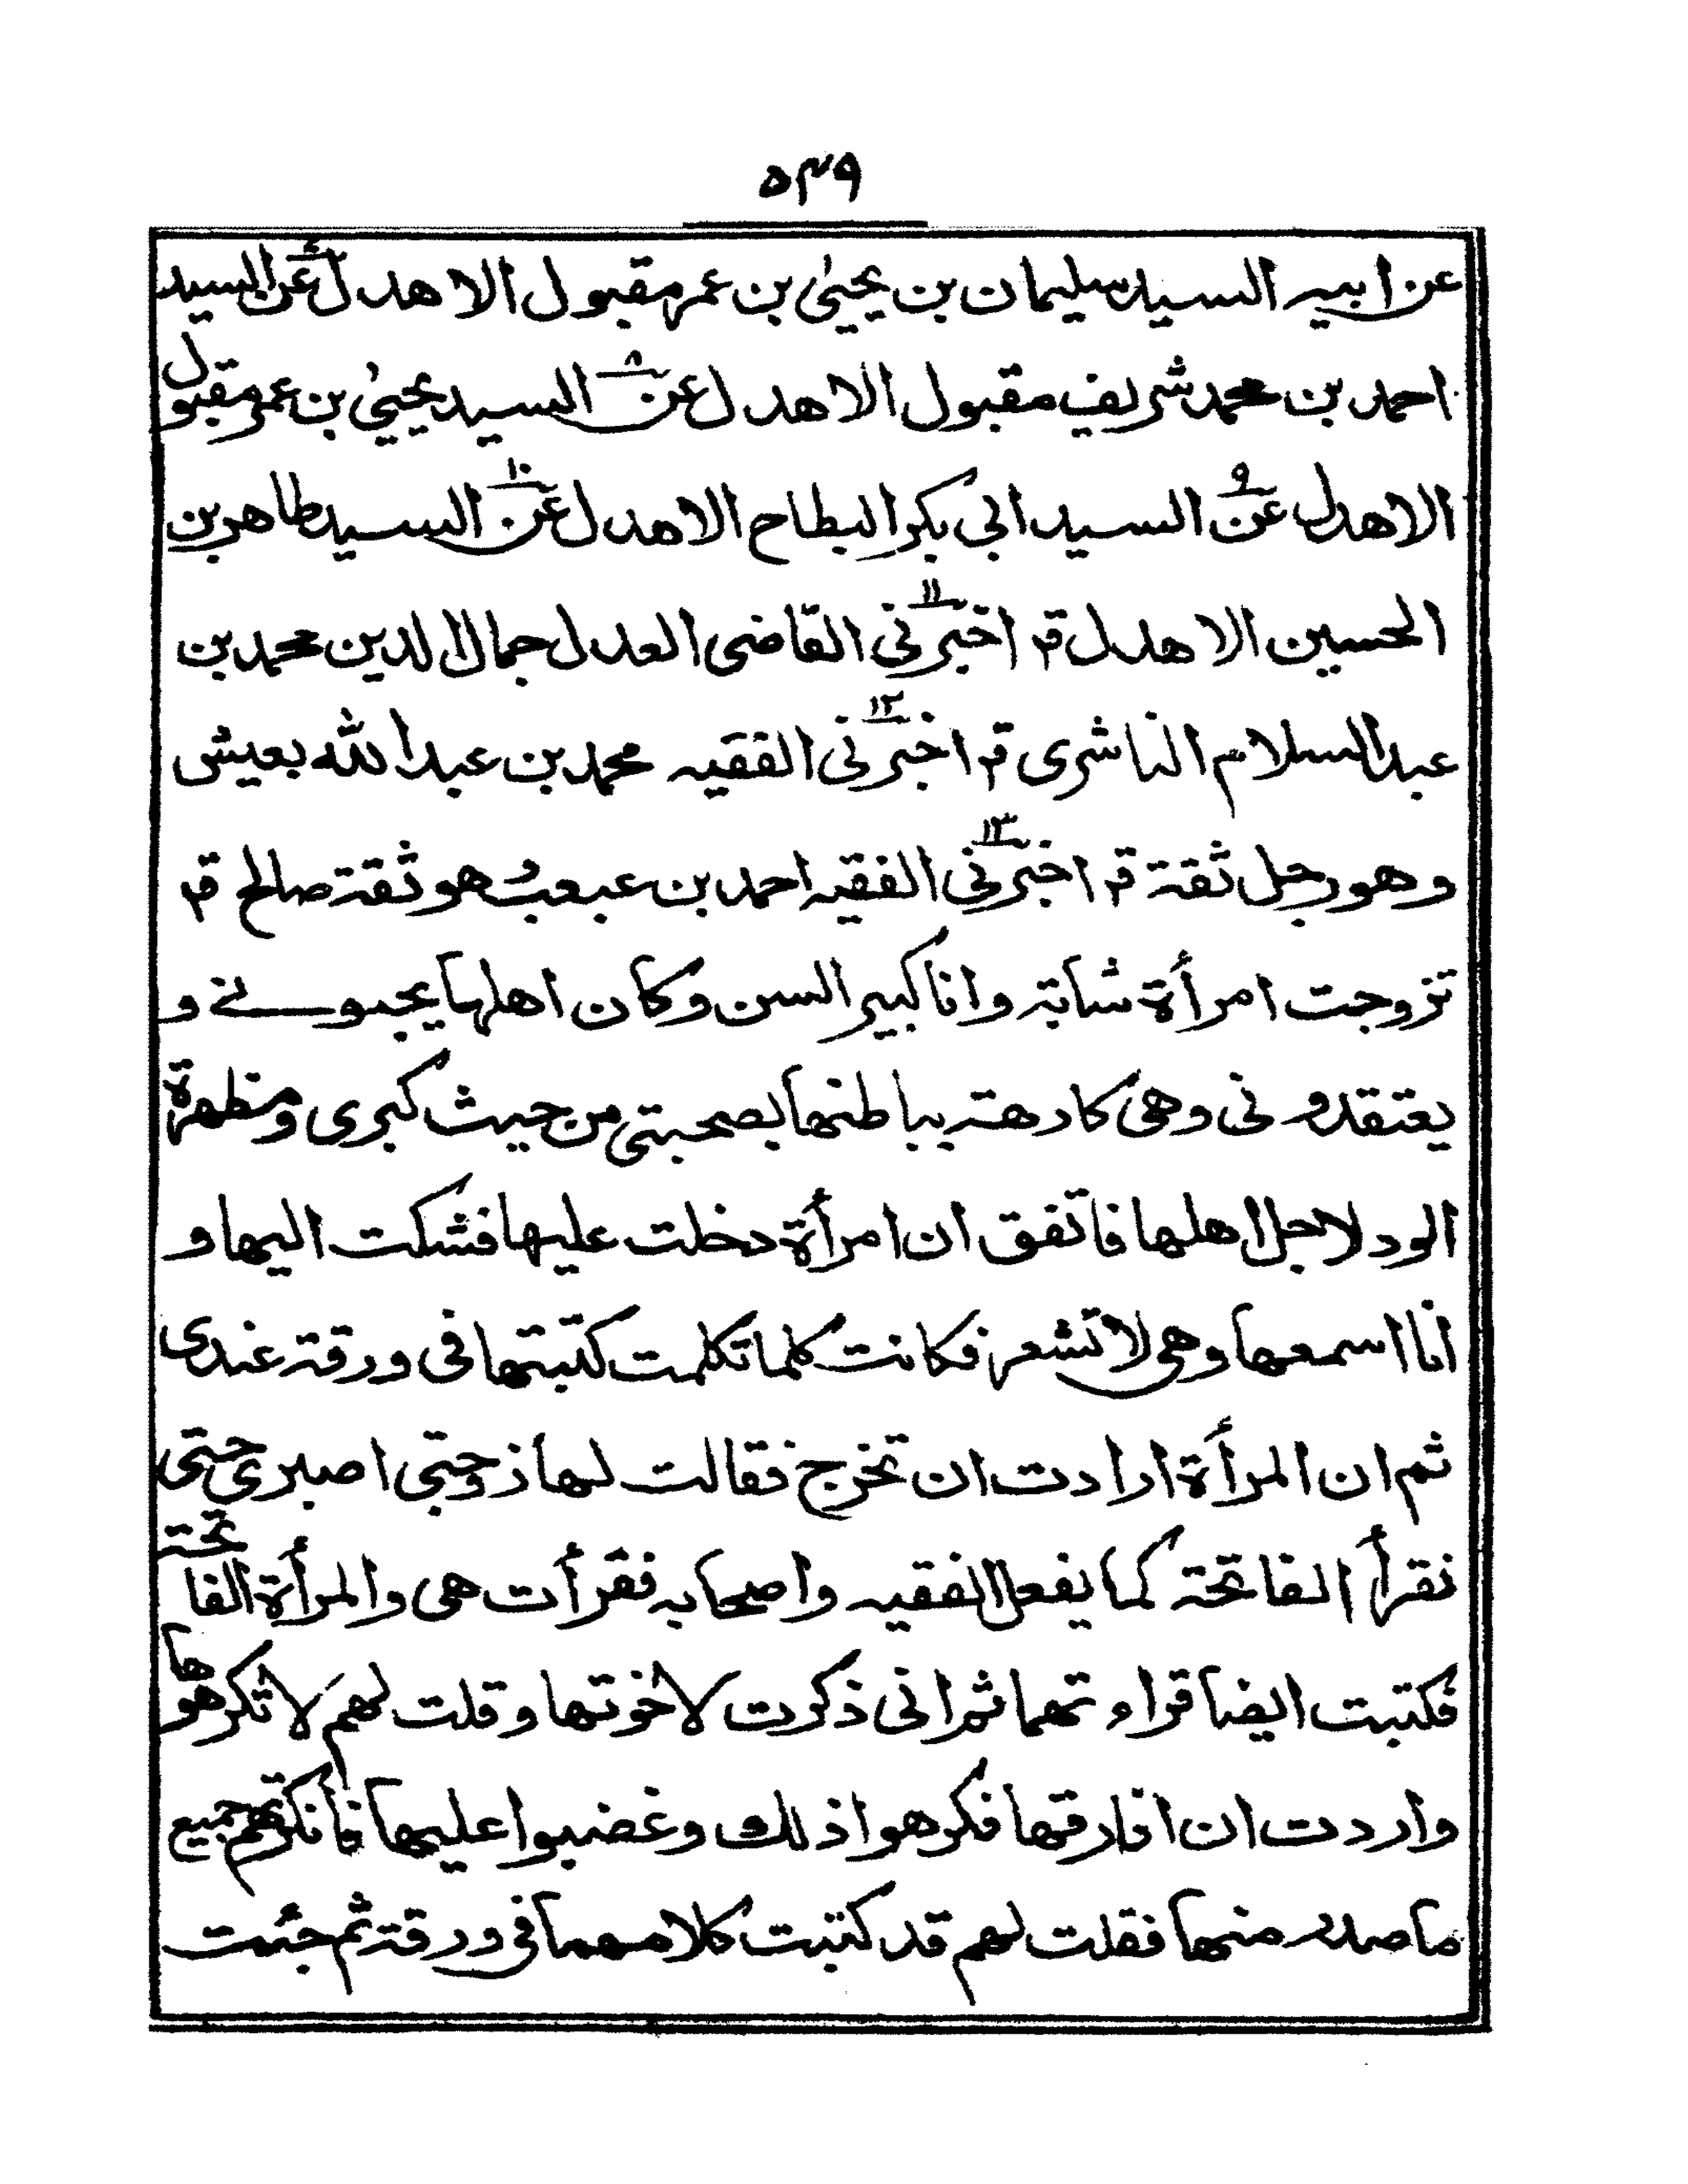 ٥٣٩
عن ابيه السيد سليمان بن يحيىٰ بن عمر مقبول الاهدل عن السيد
احمد بن محمد شريف مقبول الاهدل عن ٨ السيد يحيىٰ بن عمر مقبول
الاهدل عن ٩ السيد ابى بكر البطاح الاهدل عن ١٠ السيد طاهر بن
الحسين الاهدل قم اخبرنى ١١ القاضى العدل جمال الدين محمد بن
عبد السلام الناشرى قم اخبرنى ١٢ الفقيه محمد بن عبد الله بعيش
وهو رجل ثقة قم اخبرنى ١٣ الفقيه احمد بن عبعب وهو ثقة صالح قم
تزوجت امرأة شابة وانا كبير السن وكان اهلها يحبونى و
يعتقدونى وهى كارهته بباطنها بصحبتى من حيث كبرى ومظهرة
الود لاجل اهلها فاتفق ان امرأة دخلت عليها فشكت اليها و
انا اسمعها وهى لا تشعر فكانت كلما تكلمت كتبتها فى ورقة عندى
ثم ان المرأة ارادت ان تخرج فقالت لها زوجتى اصبرى حتى
نقرأ الفاتحة كما يفعل الفقيه واصحابه فقرأت هى والمرأة الفاتحة
فكتبت ايضا قراءتهما ثم انى ذكرت لاخوتها وقلت لهم لا تكرهوها
واردت ان افارقها فكرهوا ذلك وغضبوا عليها فانكرتهم جميع
ما صدر منها فقلت لهم قد كتبت كلامهما فى ورقة ثم جئت